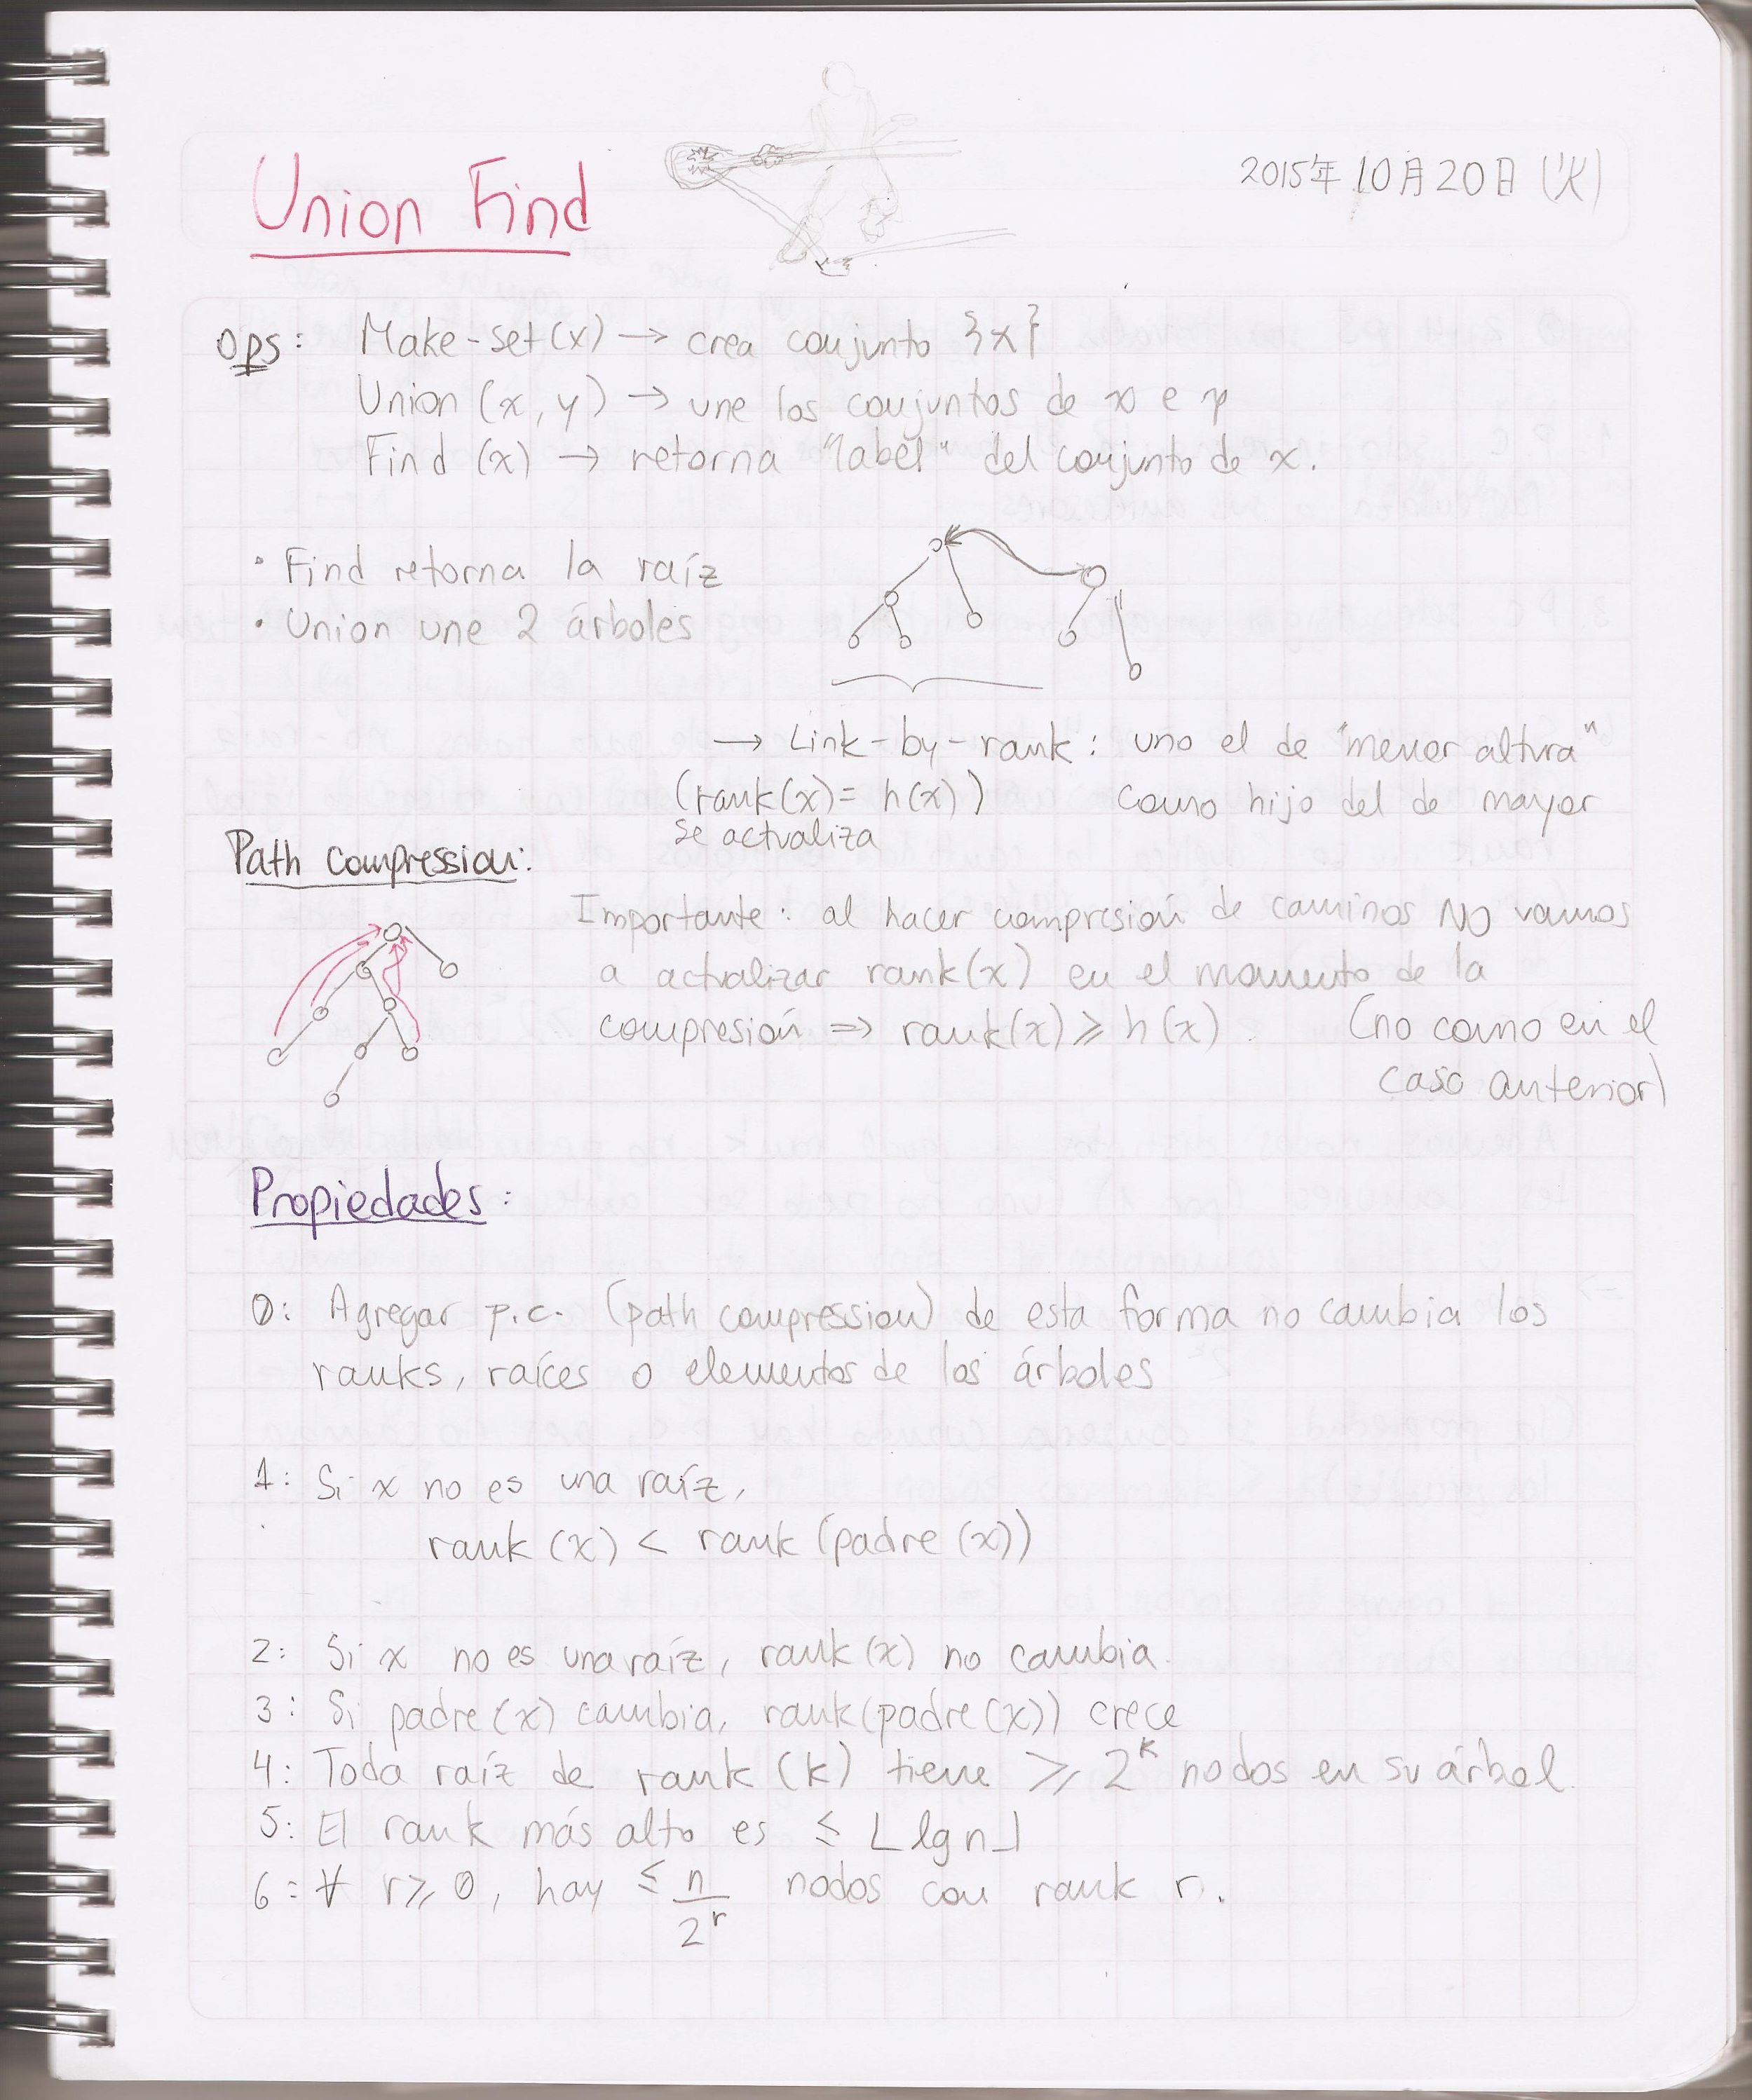 Union Find
2015年10月20日(火)
Ops: Make-set(x) → crea conjunto {x}
Union (x, y) → une los conjuntos de x e y
Find (x) → retorna "label" del conjunto de x.
· Find retorna la raíz
· Union une 2 árboles
→ Link-by-rank: uno el de "menor altura"
(rank(x) = h(x)) como hijo del de mayor
se actualiza
Path compression:
Importante: al hacer compresión de caminos NO vamos
a actualizar rank(x) en el momento de la
compresión ⇒ rank(x) ⩾ h(x) (no como en el
caso anterior)
Propiedades:
0: Agregar p.c. (path compression) de esta forma no cambia los
ranks, raíces o elementos de los árboles
1: Si x no es una raíz,
rank (x) < rank (padre (x))
2: Si x no es una raíz, rank (x) no cambia.
3: Si padre (x) cambia, rank(padre(x)) crece
4: Toda raíz de rank (k) tiene ⩾ 2^k nodos en su árbol.
5: El rank más alto es ≤ ⌊lg n⌋
6: ∀ r ⩾ 0, hay ≤ n/2^r nodos con rank r.